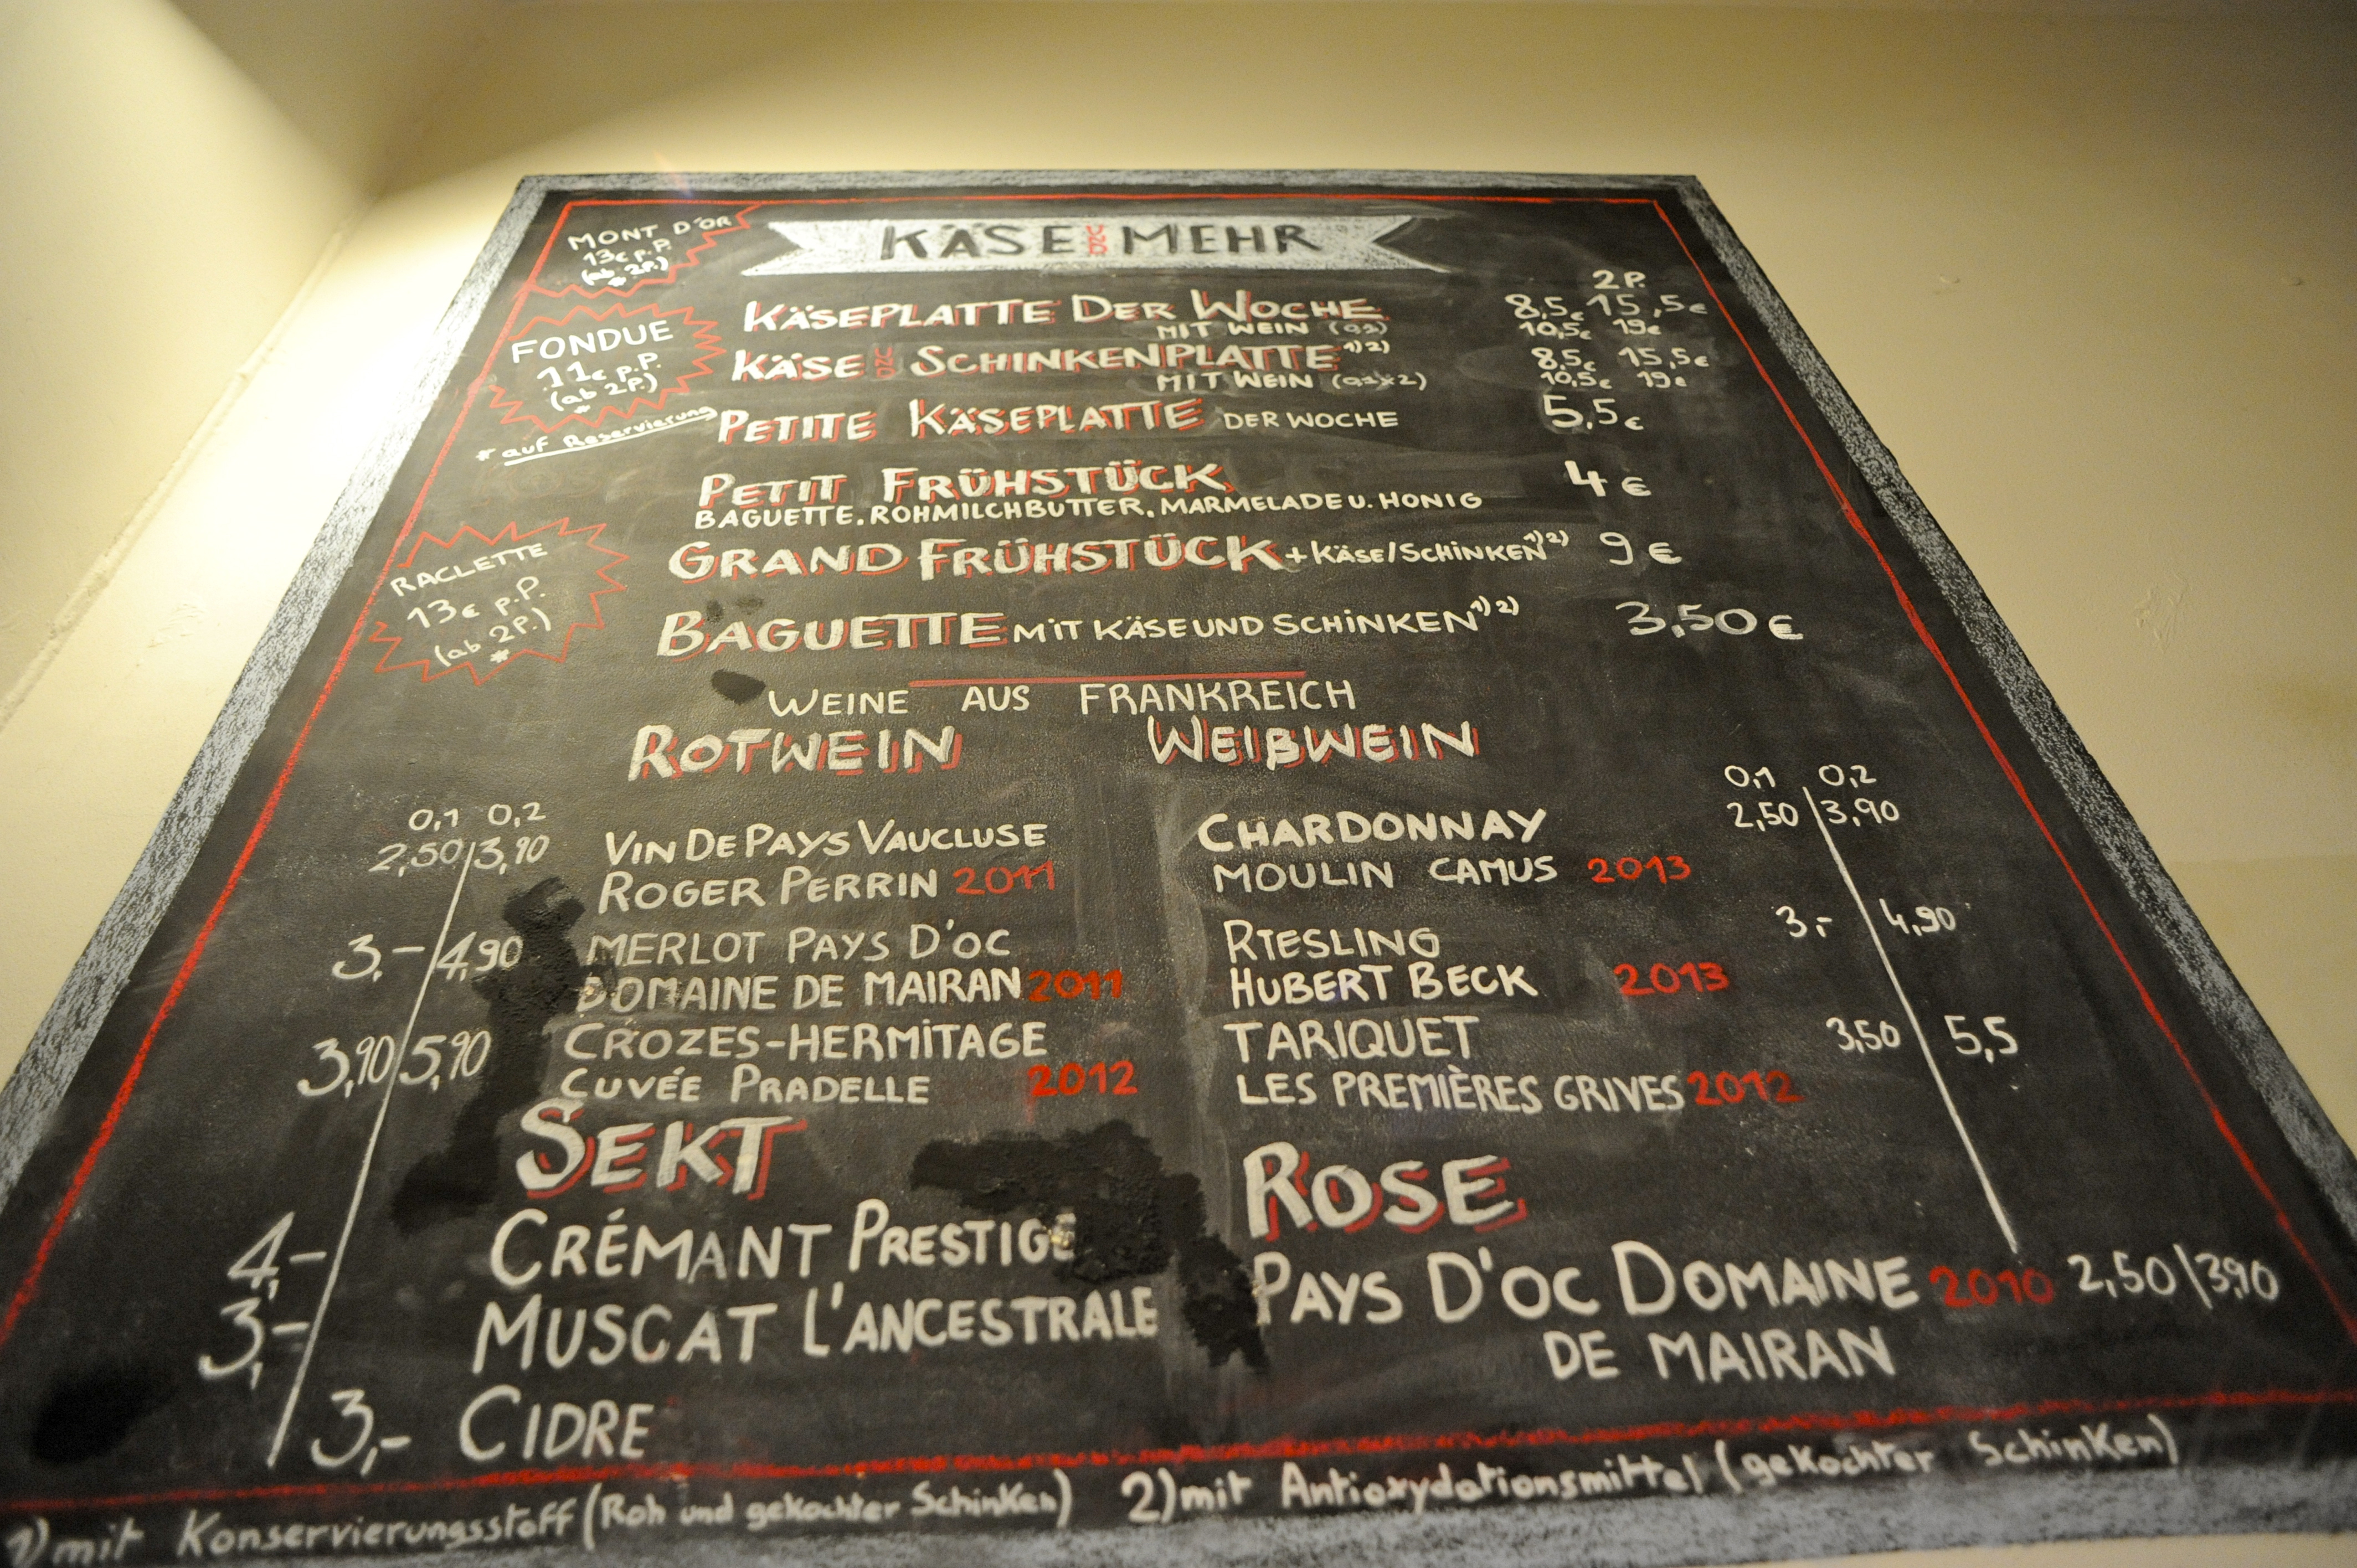 MONT D'OR
13€ p.P.
(ab 2P.)
*
KÄSE UND MEHR
2P.
KÄSEPLATTE DER WOCHE 8,5€ 15,5€
MIT WEIN (0,1) 10,5€ 19€
KÄSE UND SCHINKENPLATTE 1) 2) 8,5€ 15,5€
MIT WEIN (0,1x2) 10,5€ 19€
PETITE KÄSEPLATTE DER WOCHE 5,5€
FONDUE
11€ p.P.
(ab 2P.)
*
* auf Reservierung
PETIT FRÜHSTÜCK 4€
BAGUETTE, ROHMILCHBUTTER, MARMELADE U. HONIG
GRAND FRÜHSTÜCK + KÄSE/SCHINKEN 1) 2) 9€
RACLETTE
13€ p.P.
(ab 2P.)
*
BAGUETTE MIT KÄSE UND SCHINKEN 1) 2) 3,50€
WEINE AUS FRANKREICH
ROTWEIN
0,1 0,2
2,50/3,90 VIN DE PAYS VAUCLUSE
ROGER PERRIN 2011
3,-/4,90 MERLOT PAYS D'OC
DOMAINE DE MAIRAN 2011
3,90/5,90 CROZES-HERMITAGE
CUVÉE PRADELLE 2012
WEIßWEIN
0,1 0,2
CHARDONNAY 2,50 3,90
MOULIN CAMUS 2013
RIESLING 3,- 4,90
HUBERT BECK 2013
TARIQUET 3,50 5,5
LES PREMIÈRES GRIVES 2012
SEKT
4,- CRÉMANT PRESTIGE
3,- MUSCAT L'ANCESTRALE
3,- CIDRE
ROSE
PAYS D'OC DOMAINE 2010 2,50/3,90
DE MAIRAN
1) mit Konservierungsstoff (Roh und gekochter Schinken) 2) mit Antioxydationsmittel (gekochter Schinken)